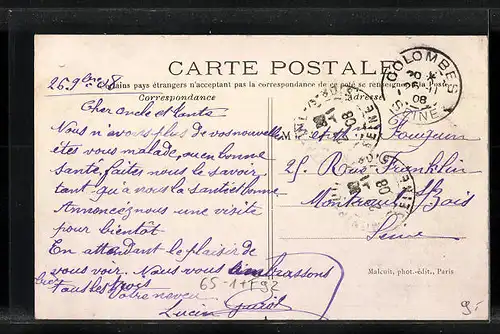 CARTE POSTALE
Certains pays étrangers n'acceptant pas la correspondance de ce côté se renseigner à la poste
Correspondance
Adresse
26 9bre 08
Cher oncle et tante
Nous n'avors plus de vos nouvelles
êtes vous malade, ou en bonne
santé, faites nous le savoir
tant qu'a nous la santé est bonne
Annoncez nous une visite
pour bientôt
En attendant le plaisir de
vous voir. Nous vous embrassons
tous les trois
Votre neveu
Lucien
M et Mme Fouquin
25 Rue Franklin
Montreuil s/Bois
Seine
COLOMBES
08
SEINE
Malcuit, phot.-édit., Paris
65-11792
9.-